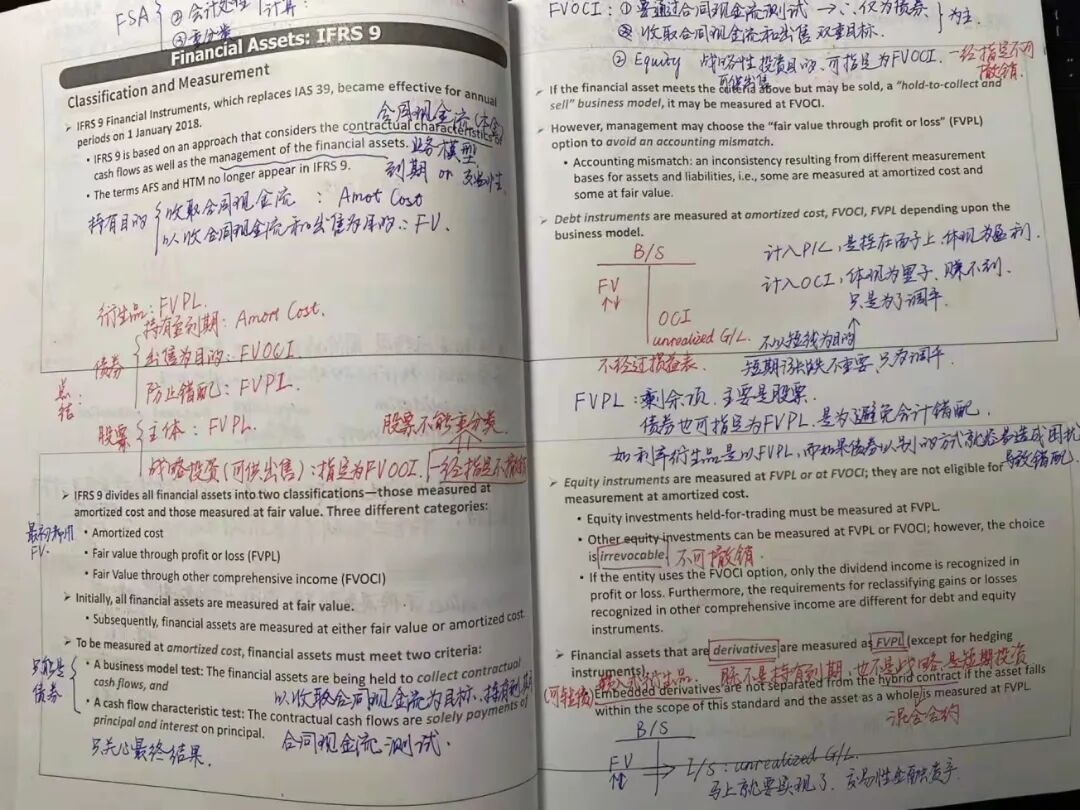 FSA
② 会计处理
计算
③ 重分类
Financial Assets: IFRS 9
Classification and Measurement
➤ IFRS 9 Financial Instruments, which replaces IAS 39, became effective for annual
periods on 1 January 2018.
合同现金流(本金)
• IFRS 9 is based on an approach that considers the contractual characteristics of
cash flows as well as the management of the financial assets. 业务模型
• The terms AFS and HTM no longer appear in IFRS 9.
到期 or 交易性
持有目的
收取合同现金流 : Amot Cost
以收合同现金流和出售为目的: FV.
衍生品: FVPL.
债券
持有至到期: Amort Cost.
出售为目的: FVOCI.
防止错配: FVPL.
总结:
股票
主体: FVPL.
股票不能重分类
战略投资(可供出售): 指定为FVOCI. 一经指定不撤销
➤ IFRS 9 divides all financial assets into two classifications—those measured at
amortized cost and those measured at fair value. Three different categories:
• Amortized cost
• Fair value through profit or loss (FVPL)
• Fair Value through other comprehensive income (FVOCI)
最初都用
FV.
➤ Initially, all financial assets are measured at fair value.
• Subsequently, financial assets are measured at either fair value or amortized cost.
➤ To be measured at amortized cost, financial assets must meet two criteria:
只能是
债券
• A business model test: The financial assets are being held to collect contractual
cash flows, and
以收取合同现金流为目标, 持有到期
• A cash flow characteristic test: The contractual cash flows are solely payments of
principal and interest on principal.
合同现金流测试.
只关心最终结果.
FVOCI: ① 要通过合同现金流测试 → ∴仅为债券
② 收取合同现金流和出售 双重目标.
为主.
② Equity 战略性投资目的、可指定为FVOCI. 一经指定不可
撤销.
可供出售
➤ If the financial asset meets the criteria above but may be sold, a "hold-to-collect and
sell" business model, it may be measured at FVOCI.
➤ However, management may choose the "fair value through profit or loss" (FVPL)
option to avoid an accounting mismatch.
• Accounting mismatch: an inconsistency resulting from different measurement
bases for assets and liabilities, i.e., some are measured at amortized cost and
some at fair value.
➤ Debt instruments are measured at amortized cost, FVOCI, FVPL depending upon the
business model.
B/S
FV
↑↓
OCI
unrealized G/L.
计入P/L, 是挂在面子上, 体现为盈利.
计入OCI, 体现为里子、赚不到.
只是为了调平
不以短线为目的
不经过损益表.
短期涨跌不重要, 只为调平.
FVPL: 剩余项, 主要是股票.
债券也可指定为FVPL, 是为避免会计错配.
如利率衍生品是以FVPL, 而如果债券以别的方式就容易造成困扰
导致错配.
➤ Equity instruments are measured at FVPL or at FVOCI; they are not eligible for
measurement at amortized cost.
• Equity investments held-for-trading must be measured at FVPL.
• Other equity investments can be measured at FVPL or FVOCI; however, the choice
is irrevocable. 不可撤销.
• If the entity uses the FVOCI option, only the dividend income is recognized in
profit or loss. Furthermore, the requirements for reclassifying gains or losses
recognized in other comprehensive income are different for debt and equity
instruments.
➤ Financial assets that are derivatives are measured as FVPL (except for hedging
instruments).
嵌入式衍生品. 既不是持有到期, 也不是战略, 是短期投资
(可转债) Embedded derivatives are not separated from the hybrid contract if the asset falls
within the scope of this standard and the asset as a whole is measured at FVPL
混合合约
B/S
FV
↑↓
→ I/S: unrealized G/L.
马上就要实现了. 交易性金融资产.